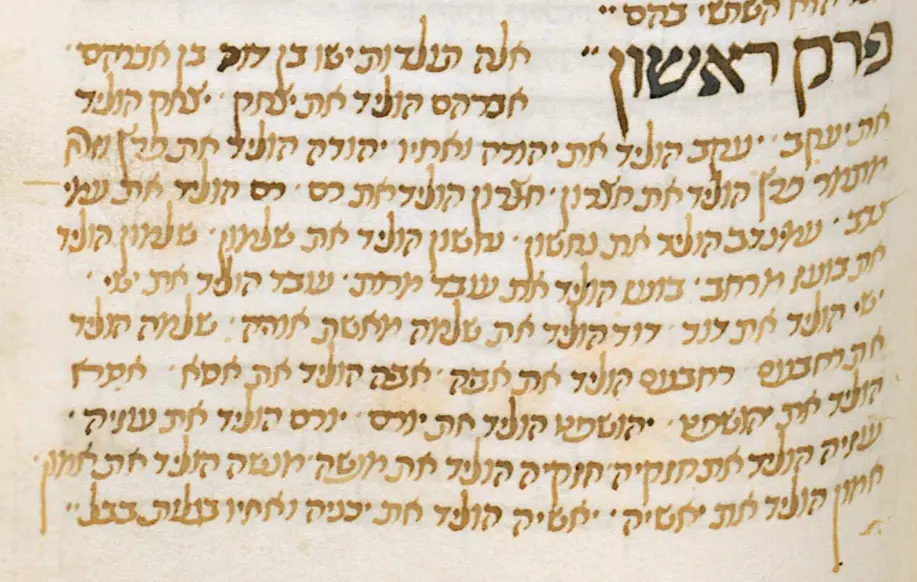 הששי בהם
פרק ראשון
אלה תולדות ישו בן דוד בן אברהם
אברהם הוליד את יצחק · יצחק הוליד
את יעקב · יעקב הוליד את יהודה ואחיו יהודה הוליד את פרץ
מתמר פרץ הוליד את חצרון · חצרון הוליד את רם · רם הוליד את עמי
נדב · עמינדב הוליד את נחשון · נחשון הוליד את שלמון · שלמון הוליד
את בועז מרחב · בועז הוליד את עובד מרות · עובד הוליד את ישי ·
ישי הוליד את דוד · דוד הוליד את שלמה מאשת אוריה · שלמה הוליד
את רחבעם · רחבעם הוליד את אביה · אביה הוליד את אסא ·
הוליד את יהושפט · יהושפט הוליד את יורם · יורם הוליד את עוזיה ·
עוזיה הוליד את חזקיה · חזקיה הוליד את מנשה · מנשה הוליד את אמון ·
אמון הוליד את יאשיה · יאשיה הוליד את יכניה ואחיו בגלות בבל